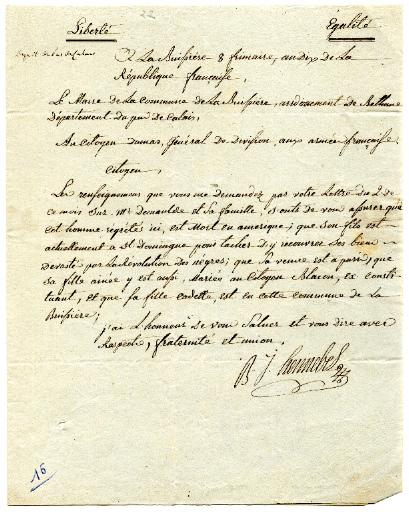 Liberté
22
Égalité
A La Buissiere 8 frimaire, an dix de La
République française.
Le Maire de La Commune de La Buissiere, arrdissement de Bethune
Département du pas de Calais.
Au Citoyen Dumas, Général de Division, aux armées françaises.
Citoyen,
Les renseignemens que vous me demandez par votre Lettre du 2 de
ce mois sur Mr et sa famille: sont de vous assurer que
cet homme régrété ici, est Mort en amerique; que son fils est
actuellement a St domingue pour tacher d'y recouvrer ses biens
Devastés par La révolution des négres; que Sa veuve est a paris, que
sa fille ainée y est aussi, Mariée au Citoyen Blacon, ex consti
tuant, et que sa fille cadette est en cette commune de La
Buissiere;
j'ai L'honneur de vous Saluer et vous dire avec
Respect, fraternité et union.
B. J. Hennebel
16